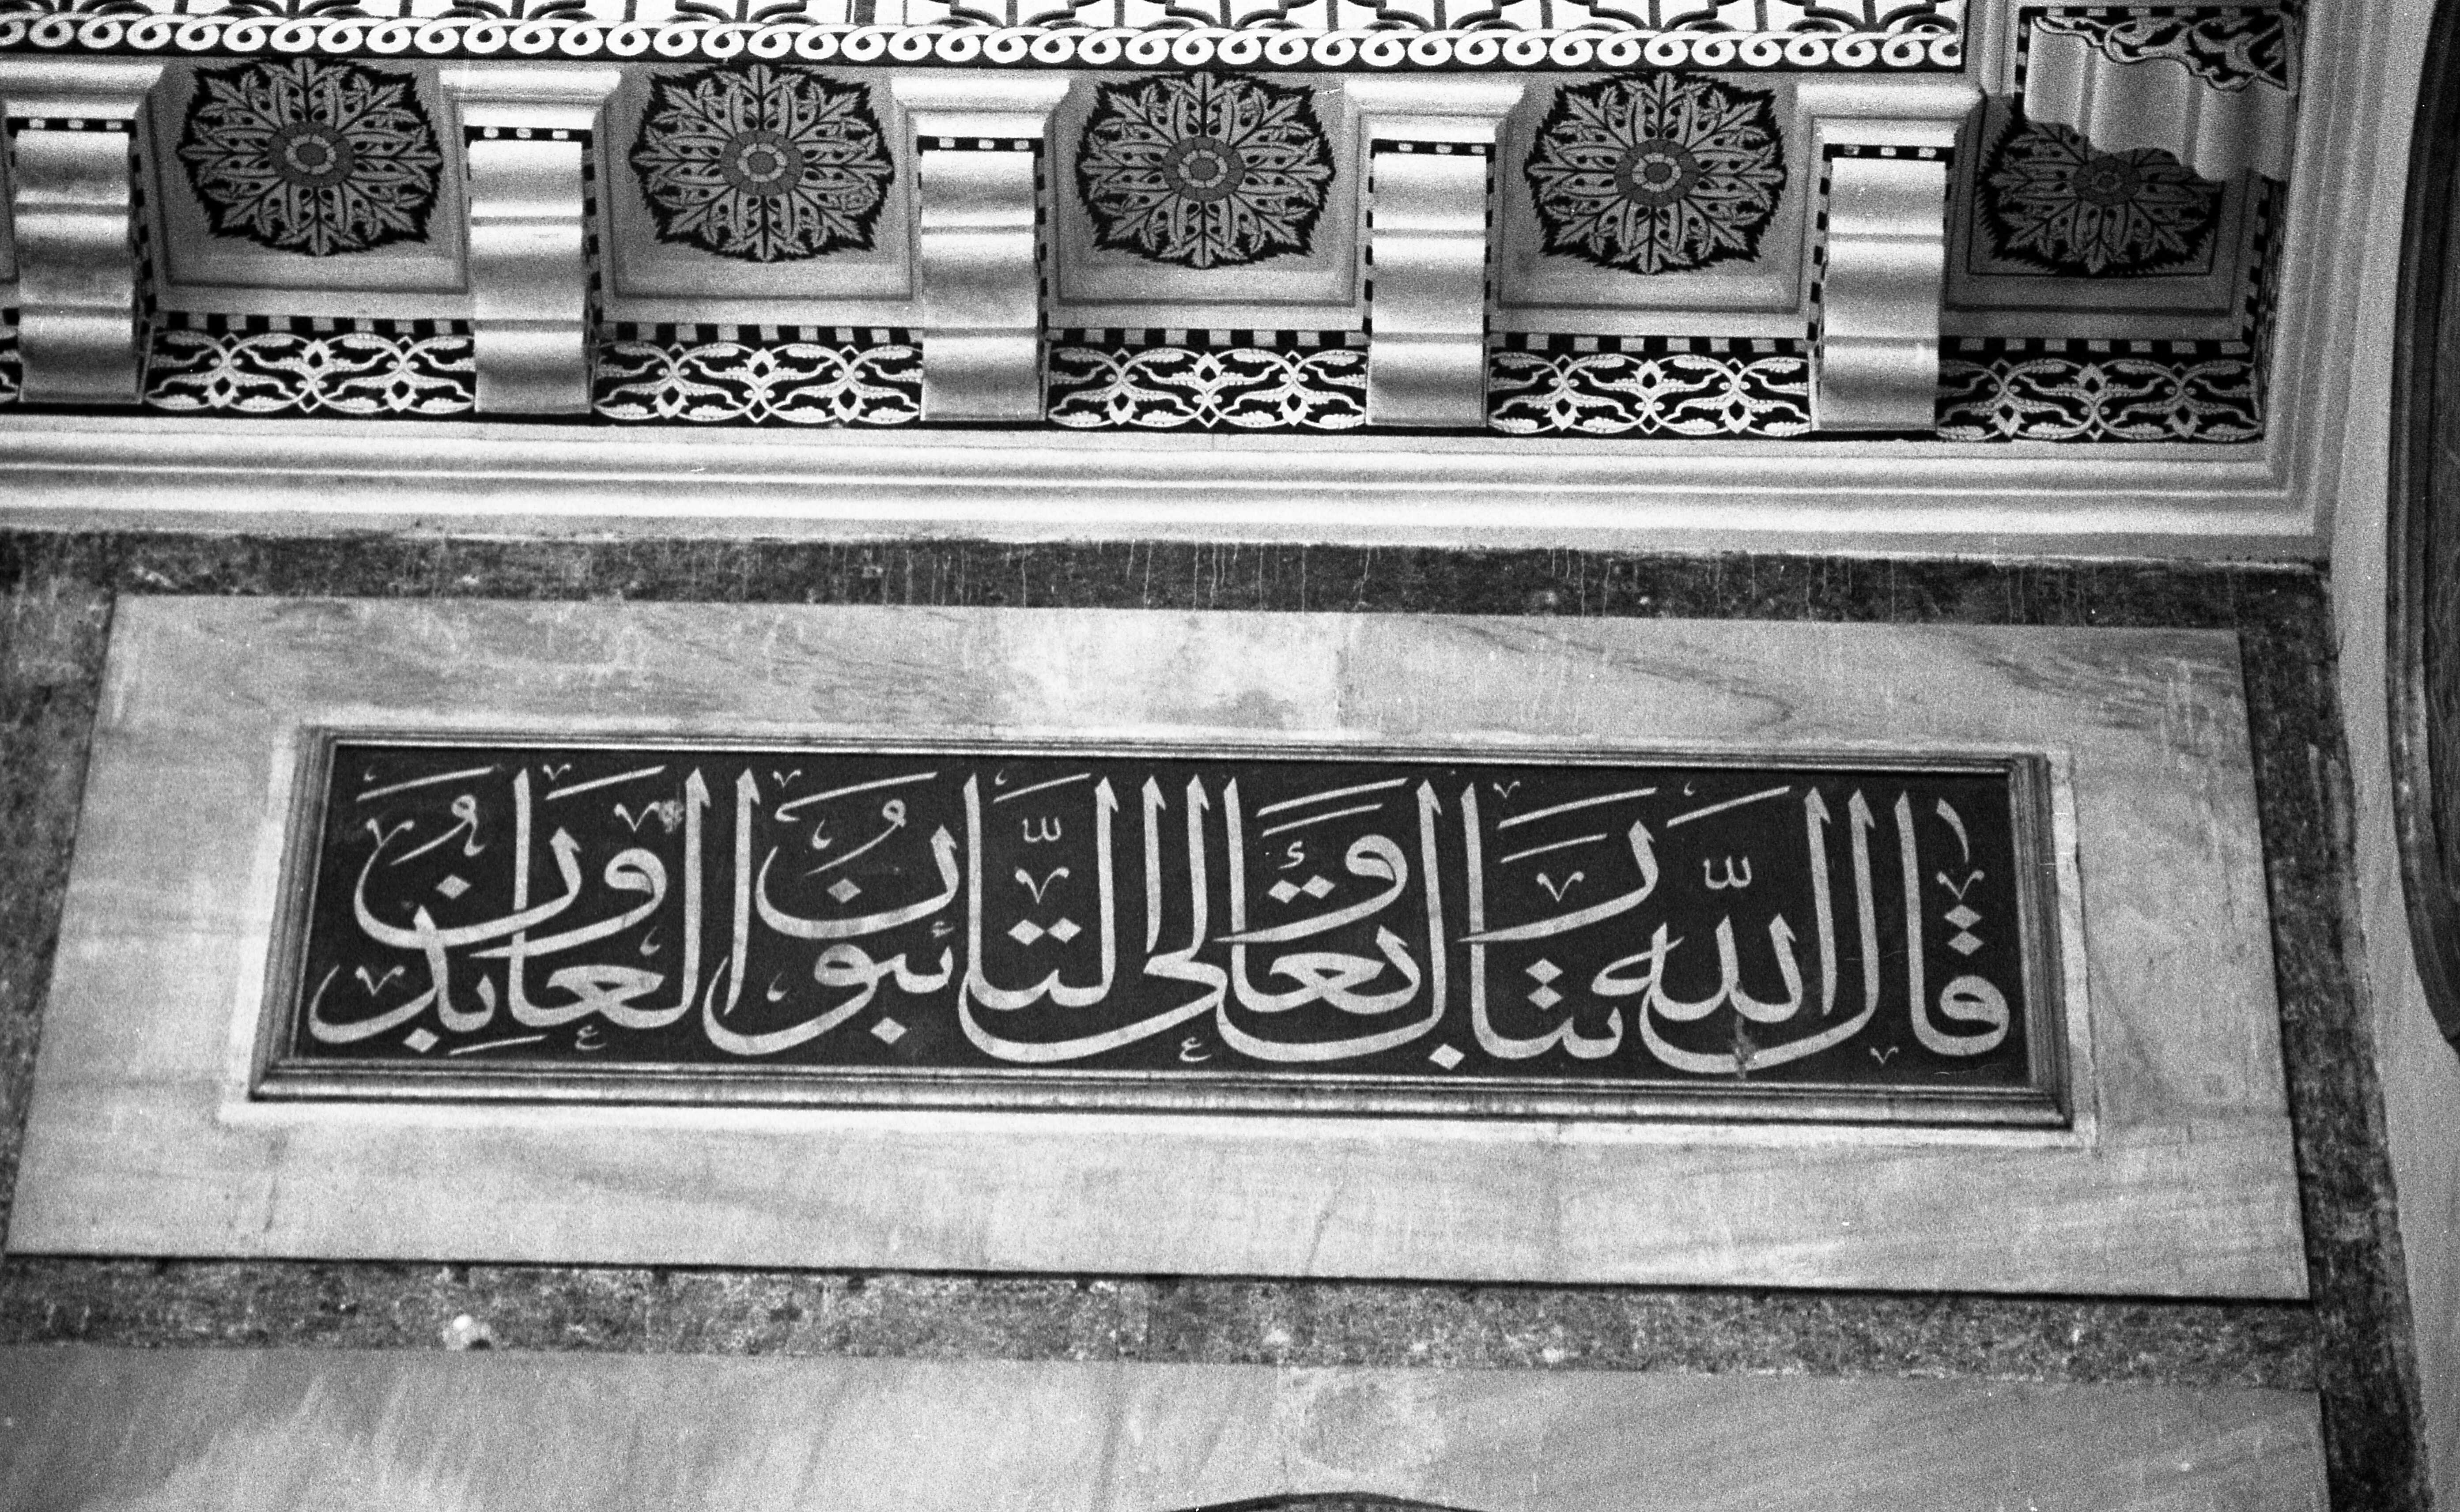 قَالَ اللّٰهُ تَبَارَكَ وَتَعَالَى التَّائِبُونَ الْعَابِدُونَ